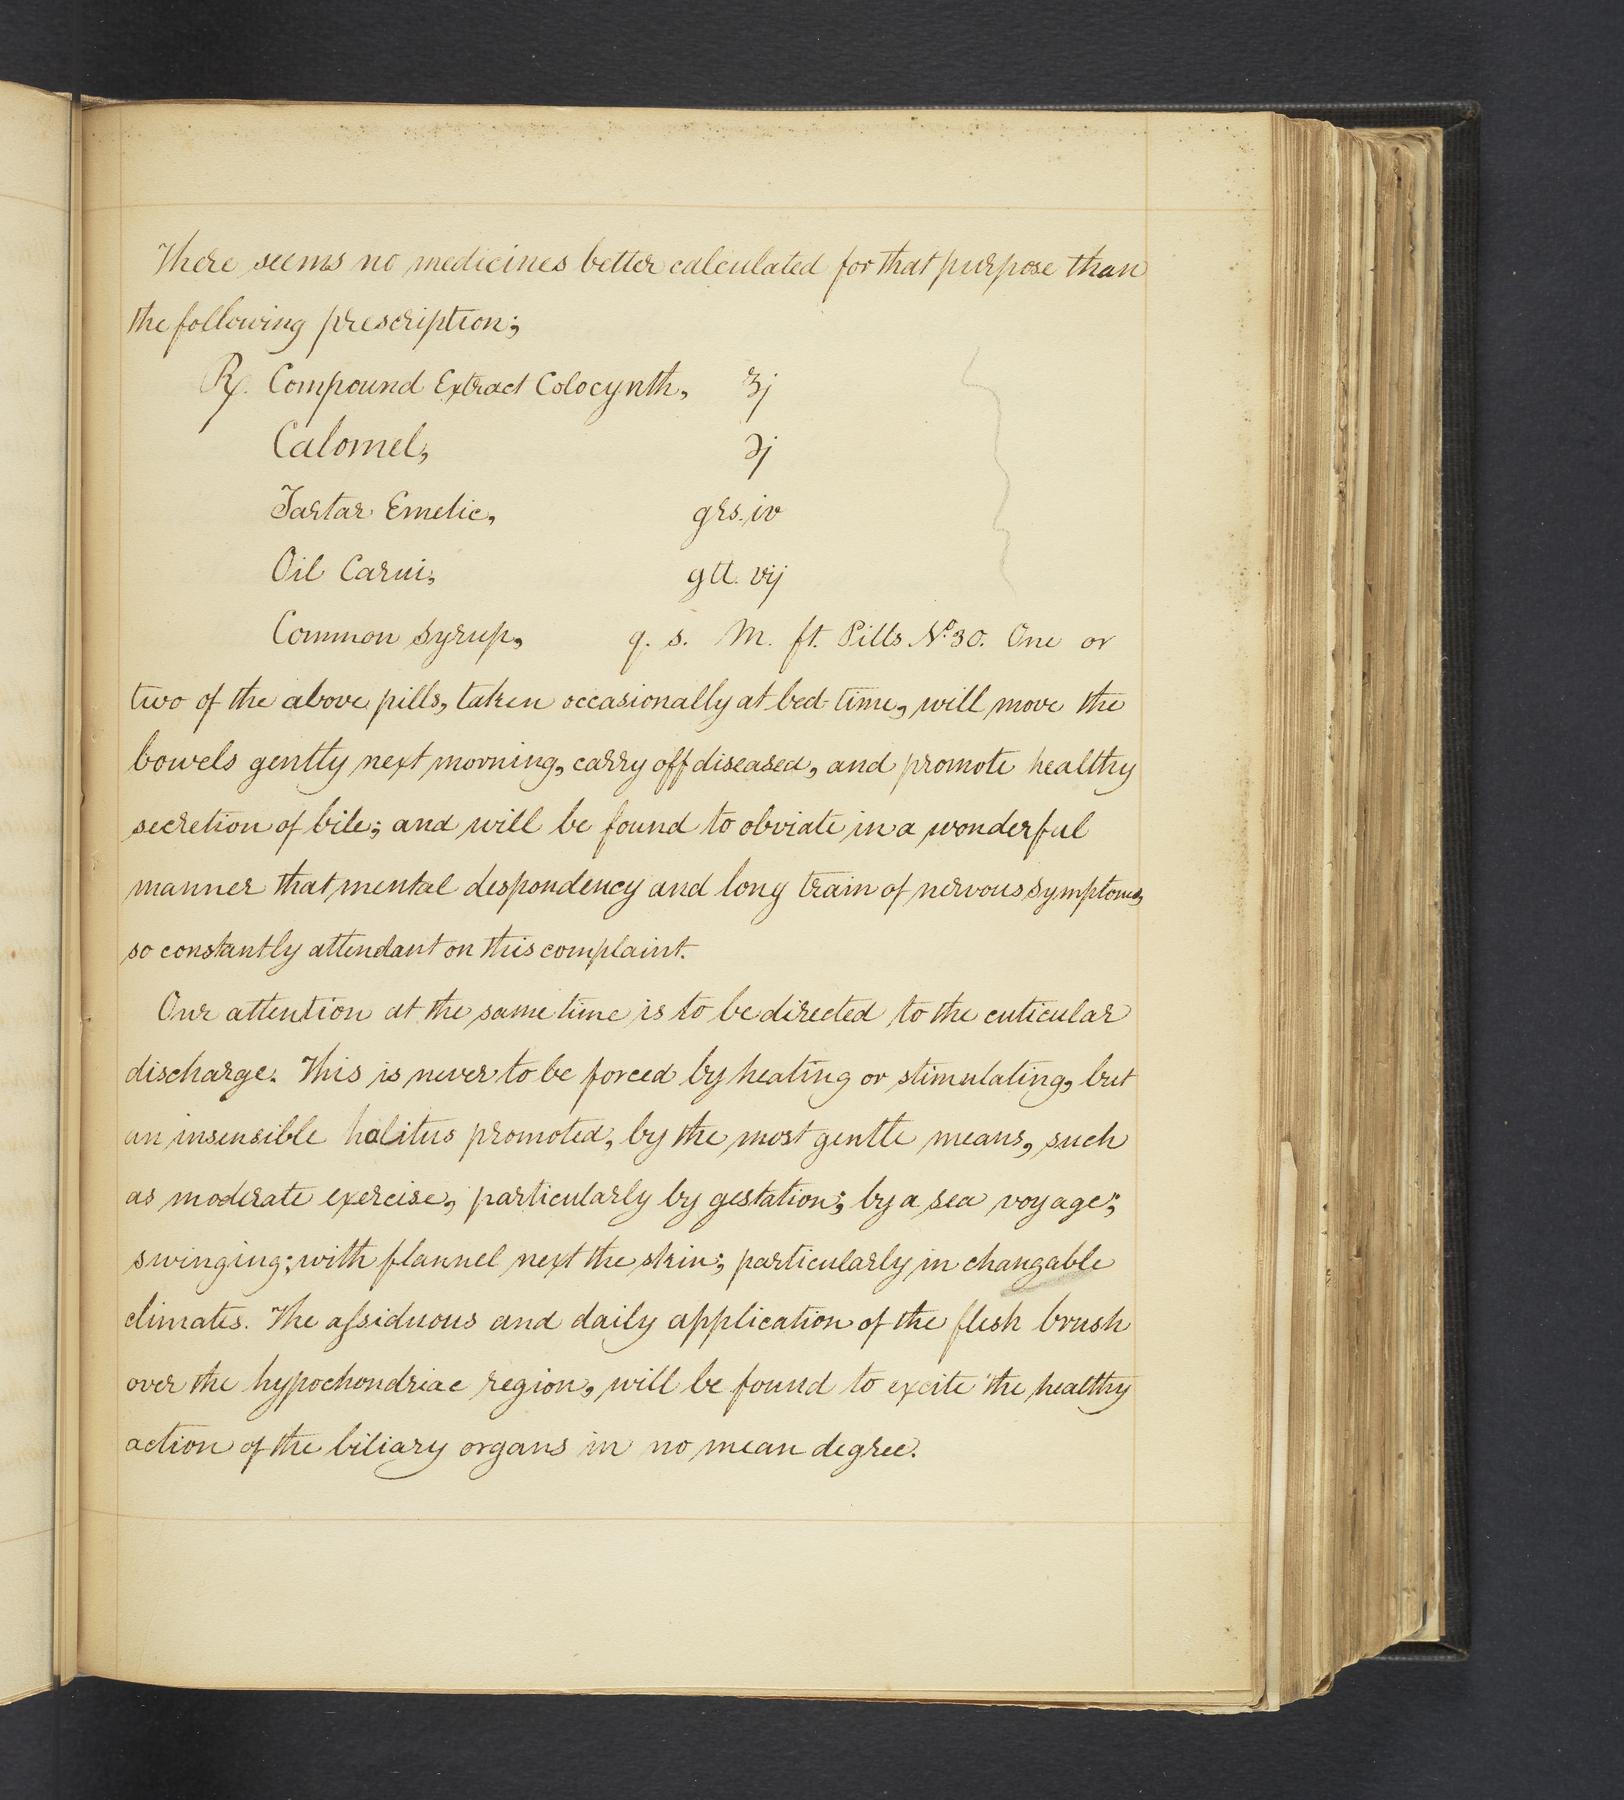 There seems no medicines better calculated for that purpose than
the following prescription;
℞. Compound Extract Colocynth, ʒj
Calomel, ℈j
Tartar Emetic, grs. iv
Oil Carui, gtt. vij
Common Syrup, q. s. M. ft. Pills No. 30. One or
two of the above pills, taken occasionally at bed time, will move the
bowels gently next morning, carry off diseased, and promote healthy
secretion of bile; and will be found to obviate in a wonderful
manner that mental despondency and long train of nervous symptoms,
so constantly attendant on this complaint.
Our attention at the same time is to be directed to the cuticular
discharge. This is never to be forced by heating or stimulating, but
an insensible halitus promoted, by the most gentle means, such
as moderate exercise, particularly by gestation; by a sea voyage;
swinging; with flannel next the skin; particularly in changable
climates. The assiduous and daily application of the flesh brush
over the hypochondriac region, will be found to excite the healthy
action of the biliary organs in no mean degree.